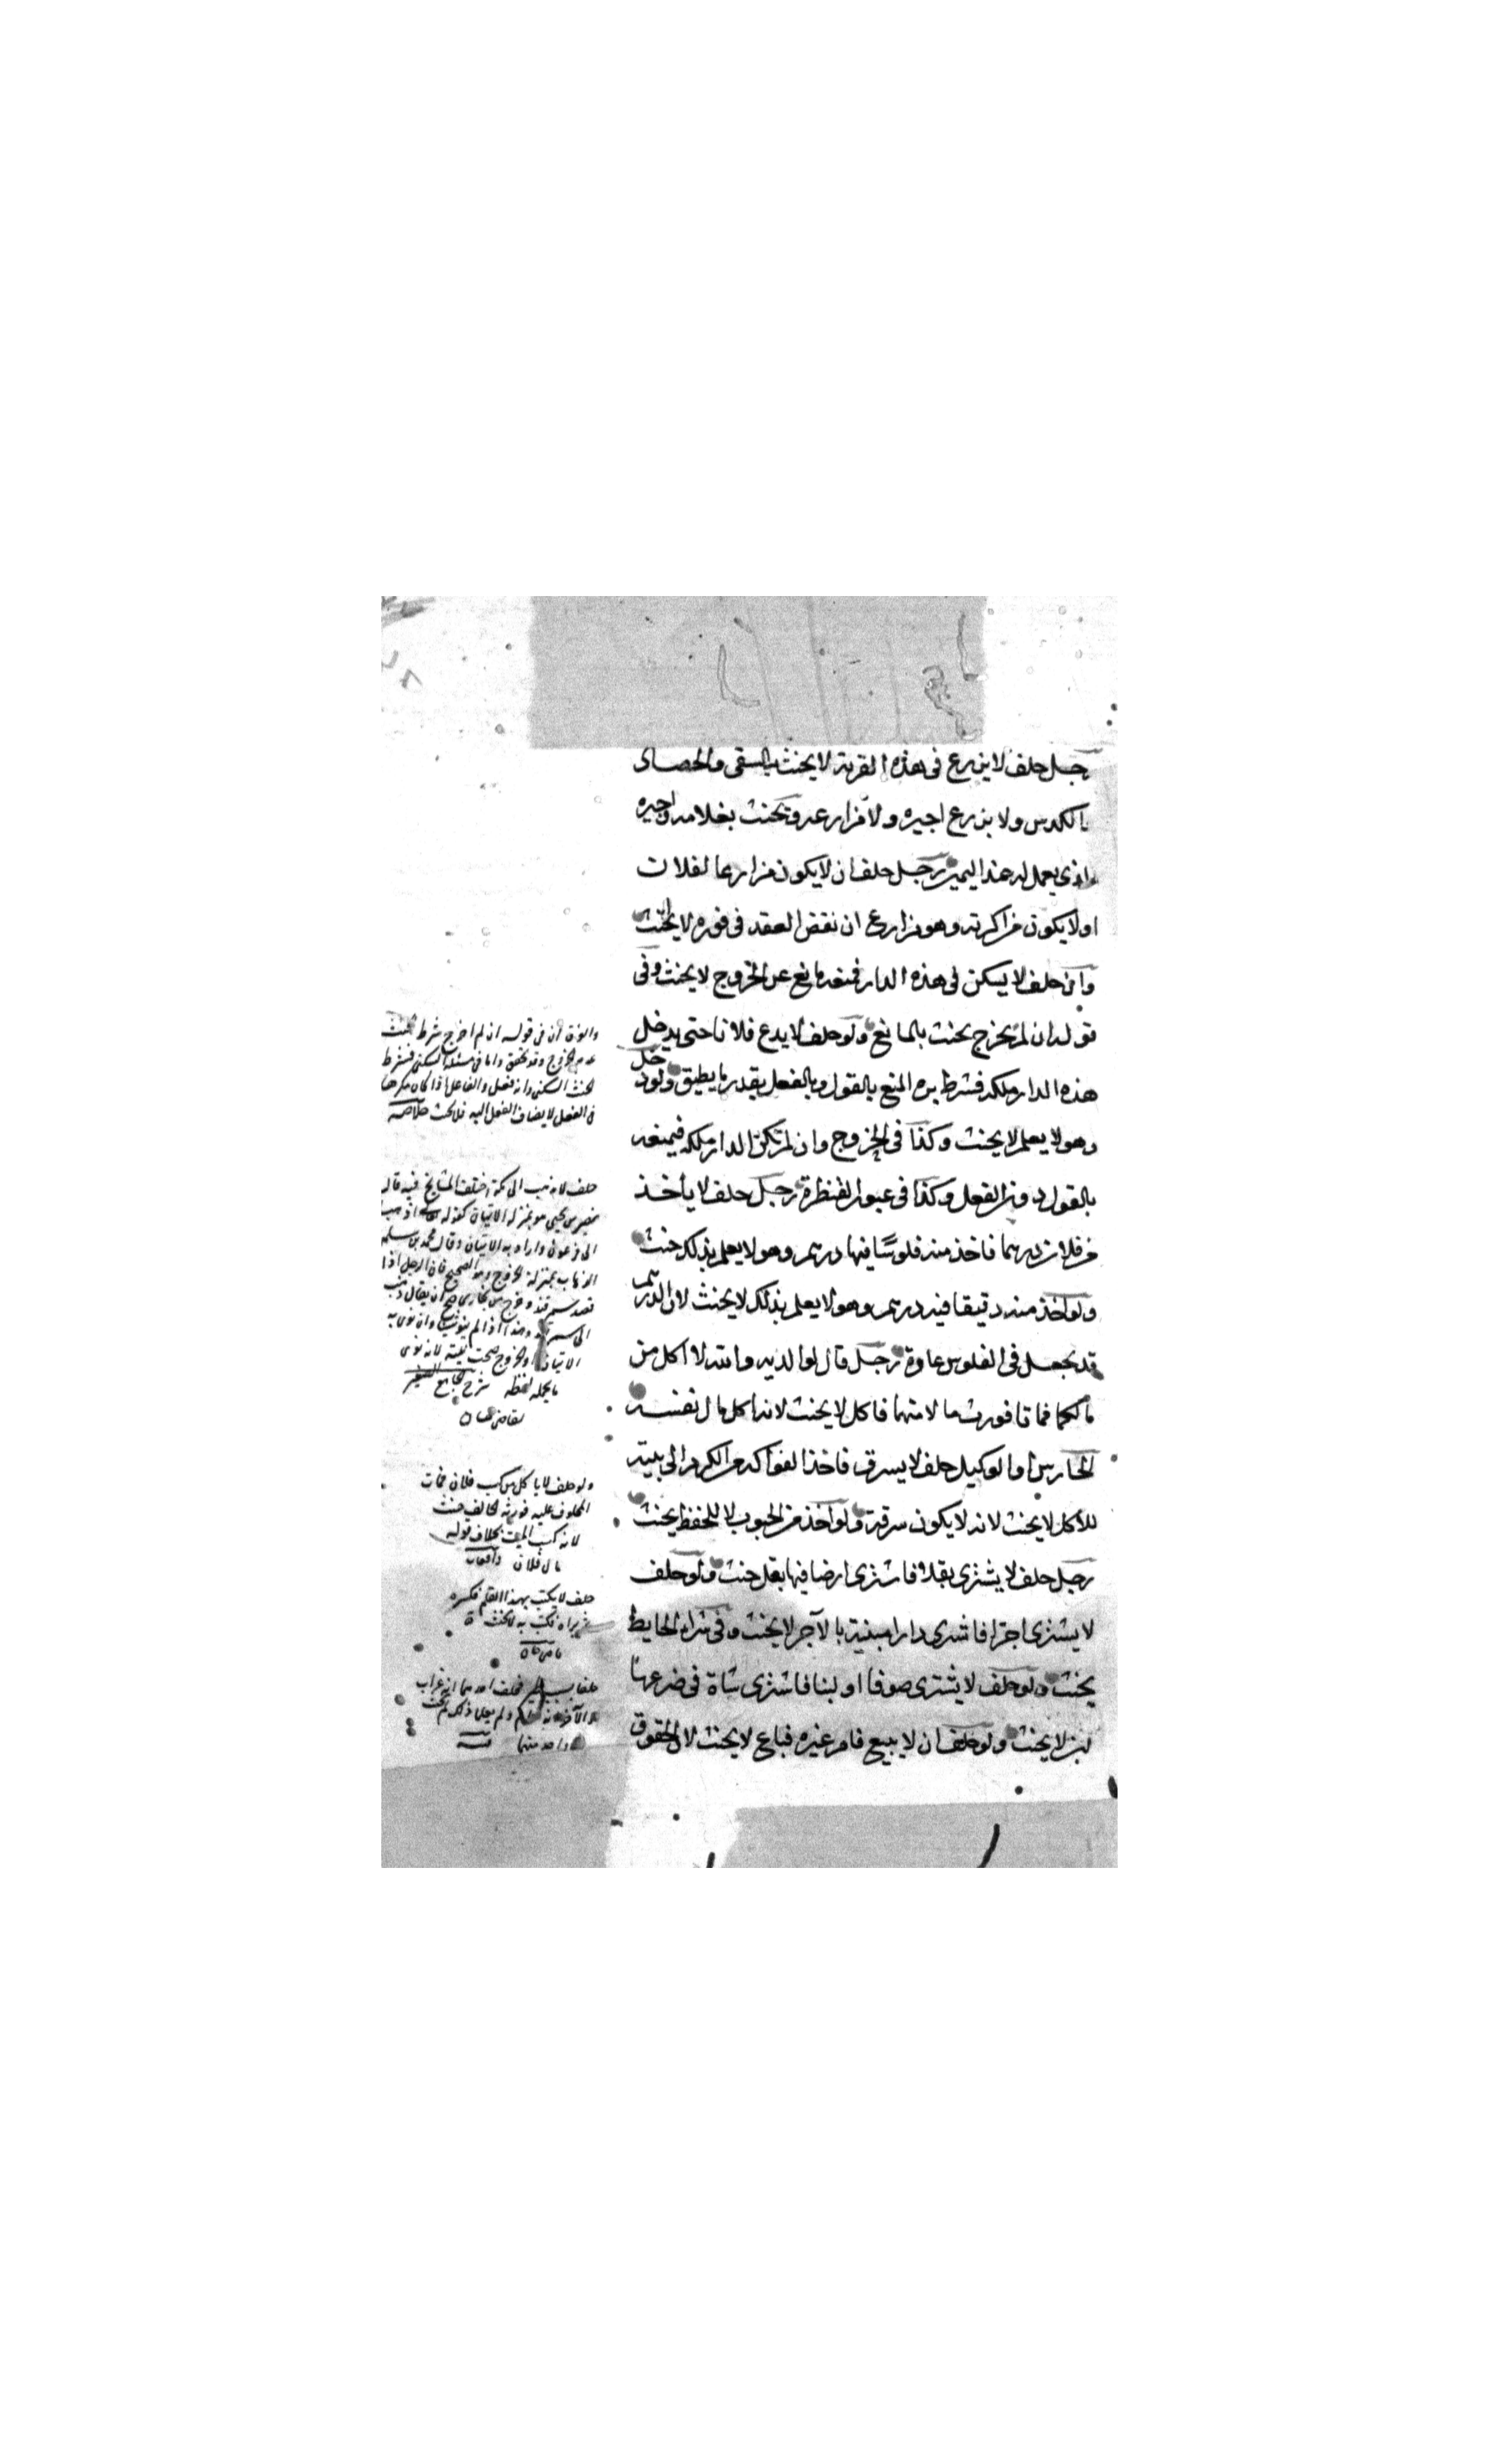 رجل حلف لا يزرع فى هذه القرية لا يحنث بالسقى والحصاد
بالكدس ولا بزرع اجيره ولا مزارعه ويحنث بغلامه واجيره
الذى يعمل له عند اليمين رجل حلف ان لا يكون مزارعا لفلان
او لا يكون من اكرته وهو مزارع ان نقض العقد فى فوره لا يحنث
وان حلف لا يسكن فى هذه الدار فمنعه مانع عن الخروج لا يحنث وفى
قوله ان لم يخرج يحنث بالمانع ولو حلف لا يدع فلانا حتى يدخل
هذه الدار ملكه فشرط بره المنع بالقول وبالفعل بقدر ما يطيق ولو دخل
وهو لا يعلم لا يحنث وكذا فى الخروج وان لم تكن الدار ملكه فيمنعه
بالقول دون الفعل وكذا فى عبور القنطرة رجل حلف لا يأخذ
من فلان درهما فاخذ منه فلوسا فيها درهم وهو لا يعلم بذلك حنث
ولو اخذ منه دقيقا فيه درهم وهو لا يعلم بذلك لا يحنث لان الدرهم
قد يجعل فى الفلوس عادة رجل قال لوالديه والله لا اكل من
مالكما فماتا فورث مالا منهما فاكل لا يحنث لانه اكل مال نفسه
الحارس او الوكيل حلف لا يسرق فاخذ الفواكه من الكرم الى بيته
للاكل لا يحنث لانه لا يكون سرقة ولو اخذ من الحبوب لا للحفظ يحنث
رجل حلف لا يشترى بقلا فاشترى ارضا فيها بقل حنث ولو حلف
لا يشترى اجرا فاشترى دارا مبنية بالآجر لا يحنث وفى شراء الحايط
يحنث ولو حلف لا يشترى صوفا او لبنا فاشترى شاة فى ضرعها
لبن لا يحنث ولو حلف ان لا يبيع فامر غيره فباع لا يحنث لان الحقوق
والفرق ان فى قوله ان لم اخرج شرط الحنث
عدم الخروج وقد تحقق واما فى مسئلة السكنى فشرط
الحنث السكنى وانه فعل والفاعل اذا كان مكرها
فى الفعل لا يضاف الفعل اليه فلا يحنث خلاصه
حلف لا يذهب الى مكة اختلف المشايخ فيه قال
نصير بن يحيى هو بمنزلة الاتيان كقوله اذهب
الى فرعون واراد به الاتيان وقال محمد بن سلمة
الذهاب بمنزلة الخروج وهو الصحيح فان الرجل اذا
قصد سمرقند وخرج من بخارى صح ان يقال ذهب
الى سمرقند وهذا اذا لم ينو شيئا وان نوى به
الاتيان او الخروج صحت نيته لانه نوى
ما يحتمله لفظه شرح الجامع الصغير
لقاضى خان
ولو حلف لا يأكل من كسب فلان فمات
المحلوف عليه فورثه الحالف حنث
لانه كسب الميت بخلاف قوله
مال فلان واقعات
حلف لا يكتب بهذا القلم فكسره
ثم براه فكتب به لا يحنث
قاضى خان
فحلف احدهما انه غراب
والآخر انه ولم يعلما ذلك لم يحنث
واحد منهما